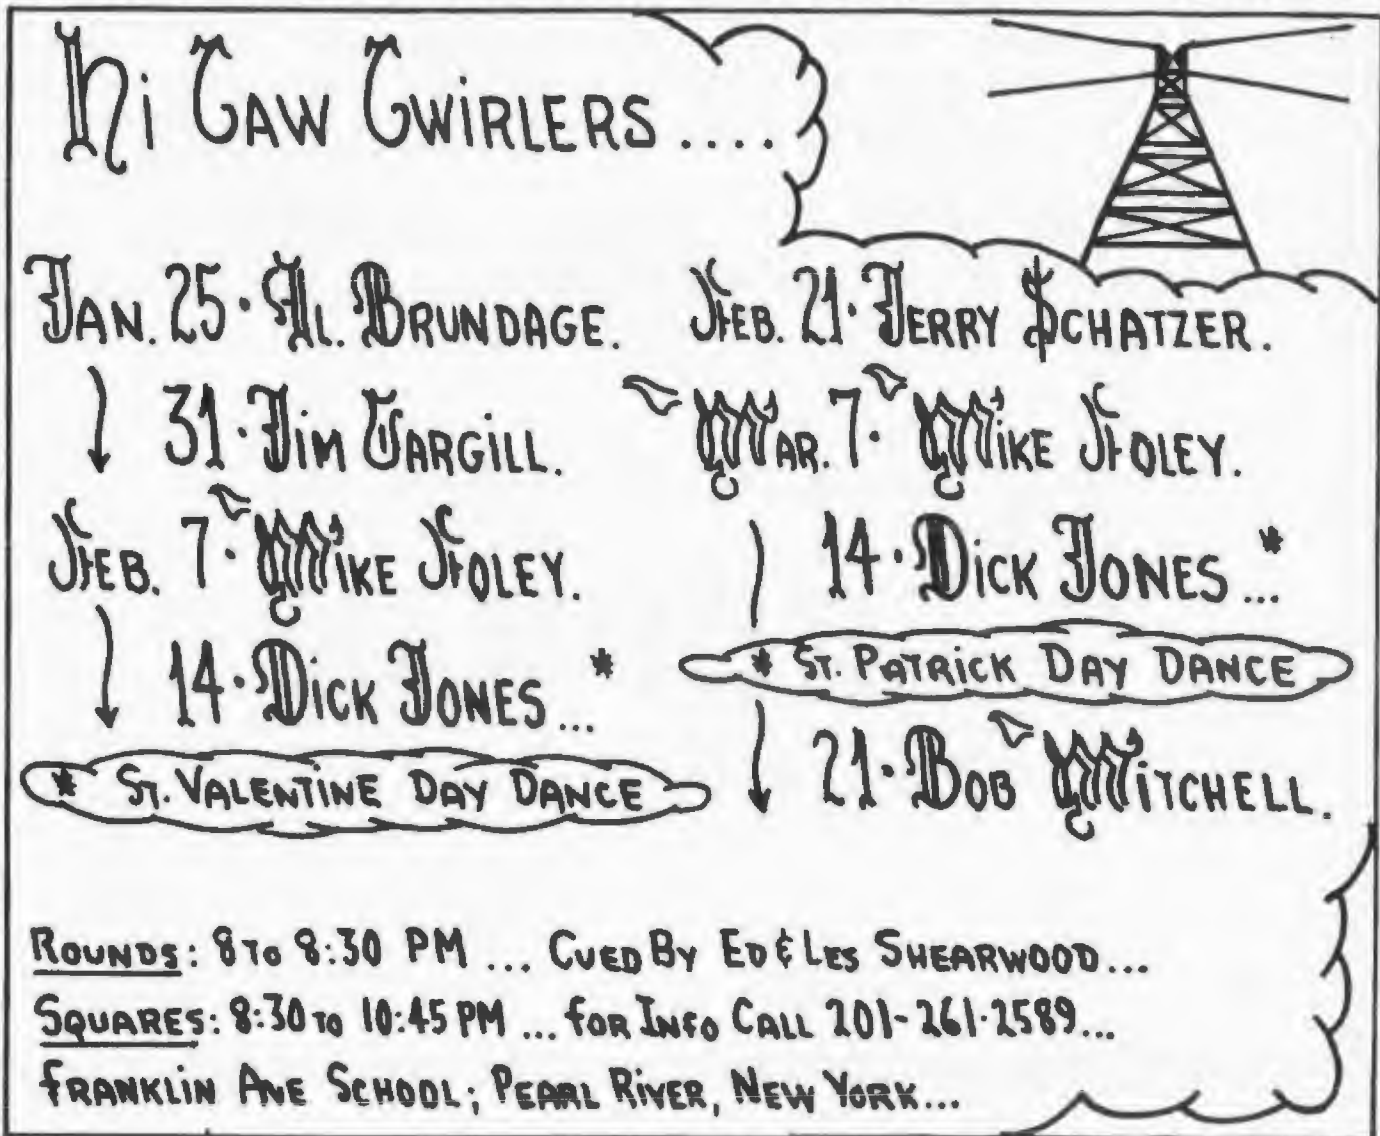 Hi Taw Twirlers....
Jan. 25 · Al Brundage.
31 · Jim Cargill.
Feb. 7 · Mike Foley.
14 · Dick Jones... *
* St. Valentine Day Dance
Feb. 21 · Jerry Schatzer.
Mar. 7 · Mike Foley.
14 · Dick Jones... *
* St. Patrick Day Dance
21 · Bob Mitchell.
Rounds: 8 to 8:30 PM ... Cued By Ed & Les Shearwood...
Squares: 8:30 to 10:45 PM ... for Info Call 201-261-2589...
Franklin Ave School; Pearl River, New York...